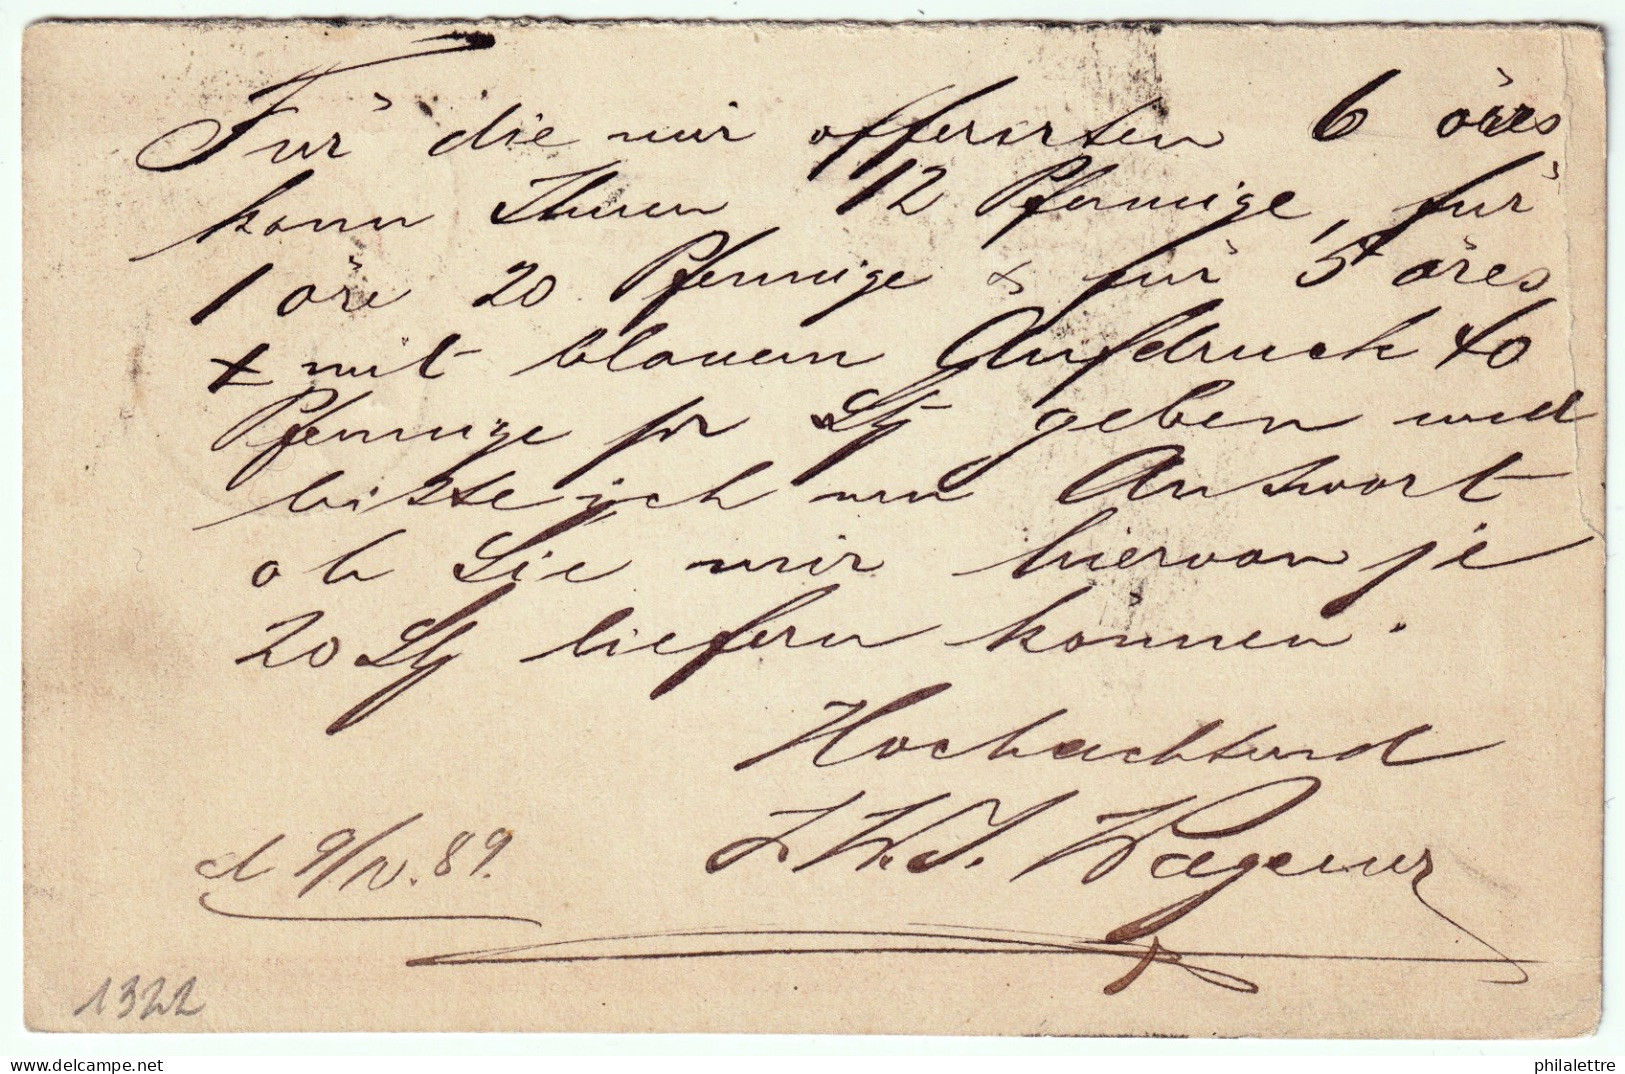 Für die mir offerirten 6 öres
kann Ihnen 12 Pfennige, für
1 öre 20 Pfennige & für 5 öres
+ mit blauem Aufdruck 40
Pfennige pr St geben und
bitte ich um Antwort
ob Sie mir hiervon je
20 St liefern können.
Hochachtend
Wagener
d 9/IV. 89.
1322
philalettre